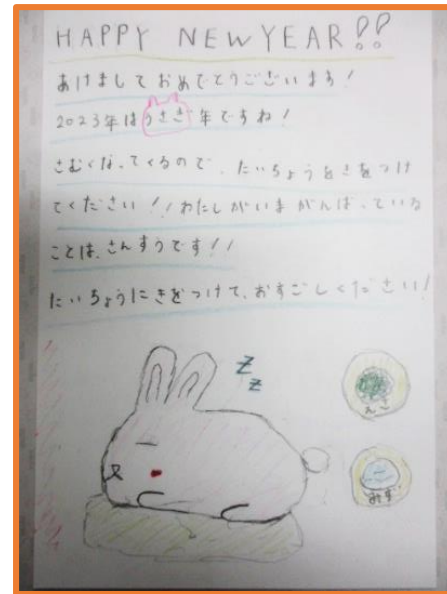 HAPPY NEW YEAR!!
あけましておめでとうございます!
2023年はうさぎ年ですね!
さむくなってくるので、たいちょうをきをつけ
てください!!わたしがいまがんばっている
ことは、さんすうです!!
たいちょうにきをつけて、おすごしください!
zz
えさ
みず